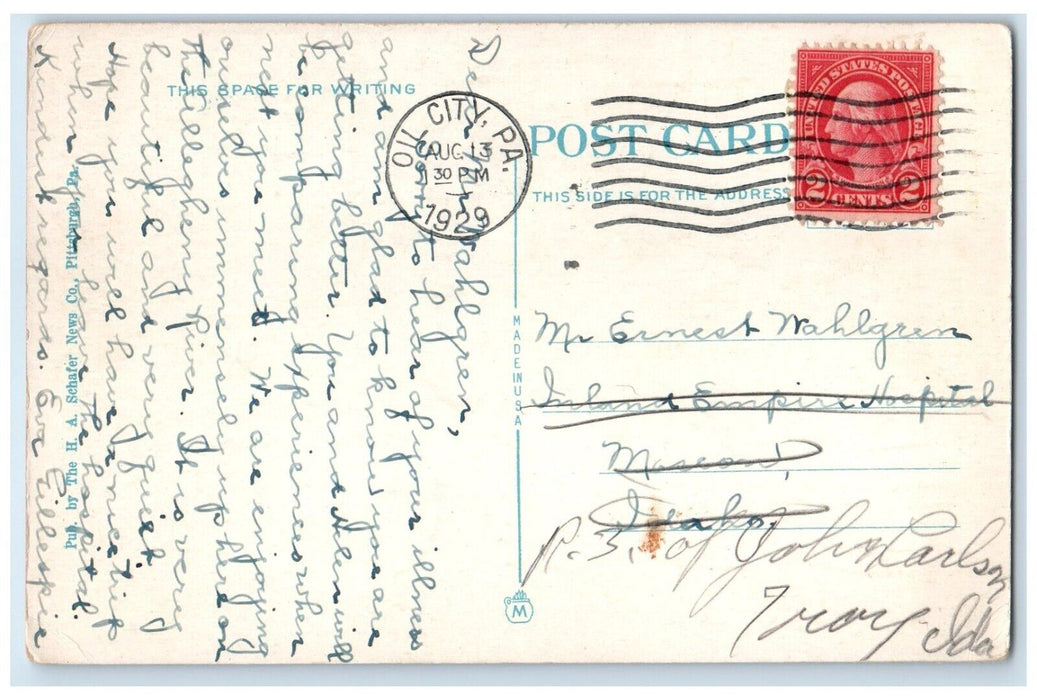 THIS SPACE FOR WRITING
Dear Mr Wahlgren,
Sorry to hear of your illness
and am glad to know you are
getting better. You and Helen will
be comparing experiences when
next you meet. We are enjoying
ourselves immensely up here on
the Allegheny River. It is very
beautiful and very quiet.
Hope you will have a nice trip
when you leave the hospital.
Kindest regards. Eva Gillespie
Pub. by The H. A. Schafer News Co., Pittsburgh, Pa.
OIL CITY, PA.
AUG 13
130 PM
1929
POST CARD
THIS SIDE IS FOR THE ADDRESS
UNITED STATES POSTAGE
2 CENTS 2
MADE IN USA
M
Mr Ernest Wahlgren
Inland Empire Hospital
Moscow,
Idaho.
R.3. of John Carlson
Troy. Ida